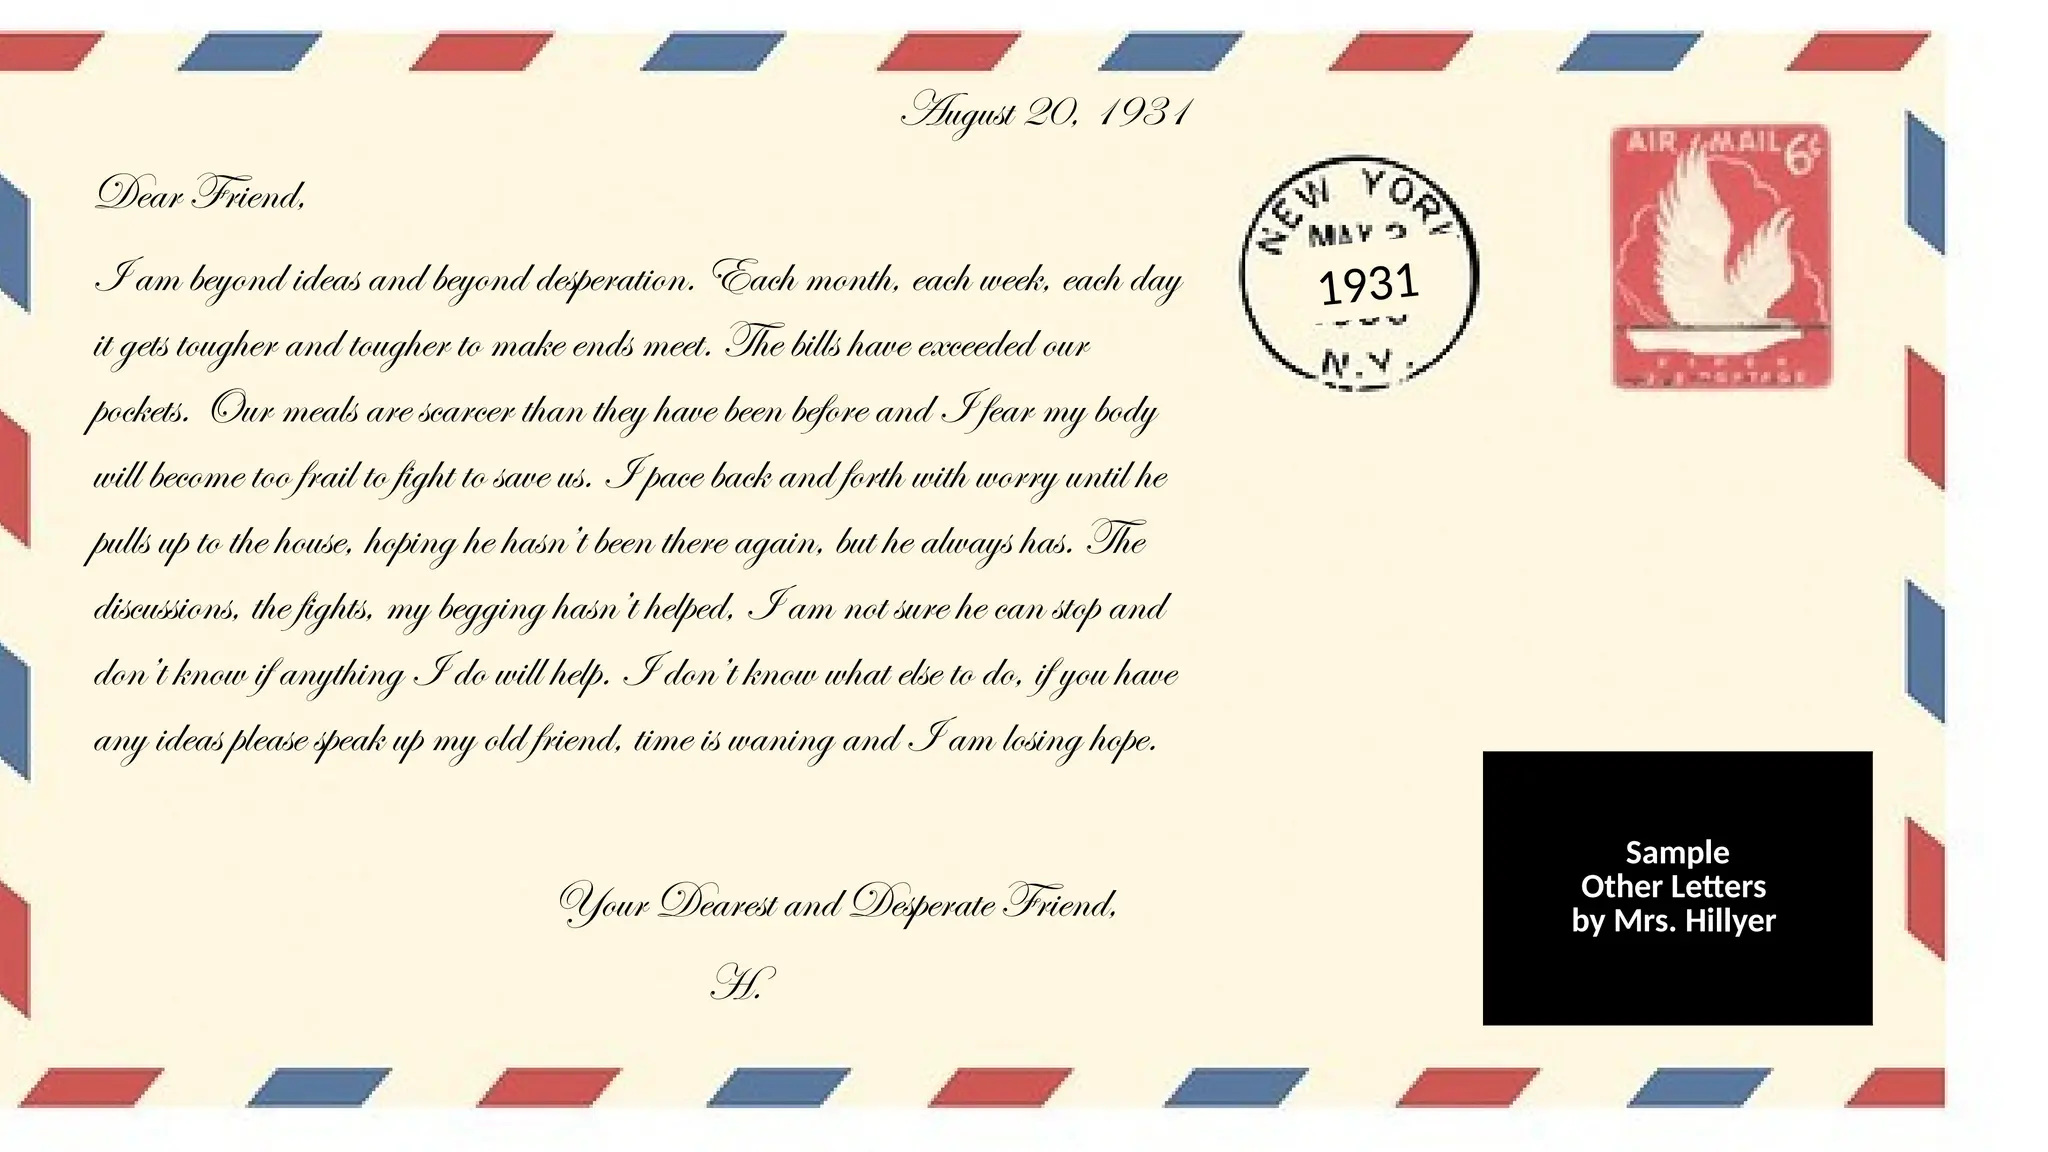 August 20, 1931
Dear Friend,
I am beyond ideas and beyond desperation. Each month, each week, each day
it gets tougher and tougher to make ends meet. The bills have exceeded our
pockets. Our meals are scarcer than they have been before and I fear my body
will become too frail to fight to save us. I pace back and forth with worry until he
pulls up to the house, hoping he hasn't been there again, but he always has. The
discussions, the fights, my begging hasn't helped, I am not sure he can stop and
don't know if anything I do will help. I don't know what else to do, if you have
any ideas please speak up my old friend, time is waning and I am losing hope.
Your Dearest and Desperate Friend,
H.
NEW YORK
MAY
1931
N.Y.
AIR MAIL 6¢
Sample
Other Letters
by Mrs. Hillyer